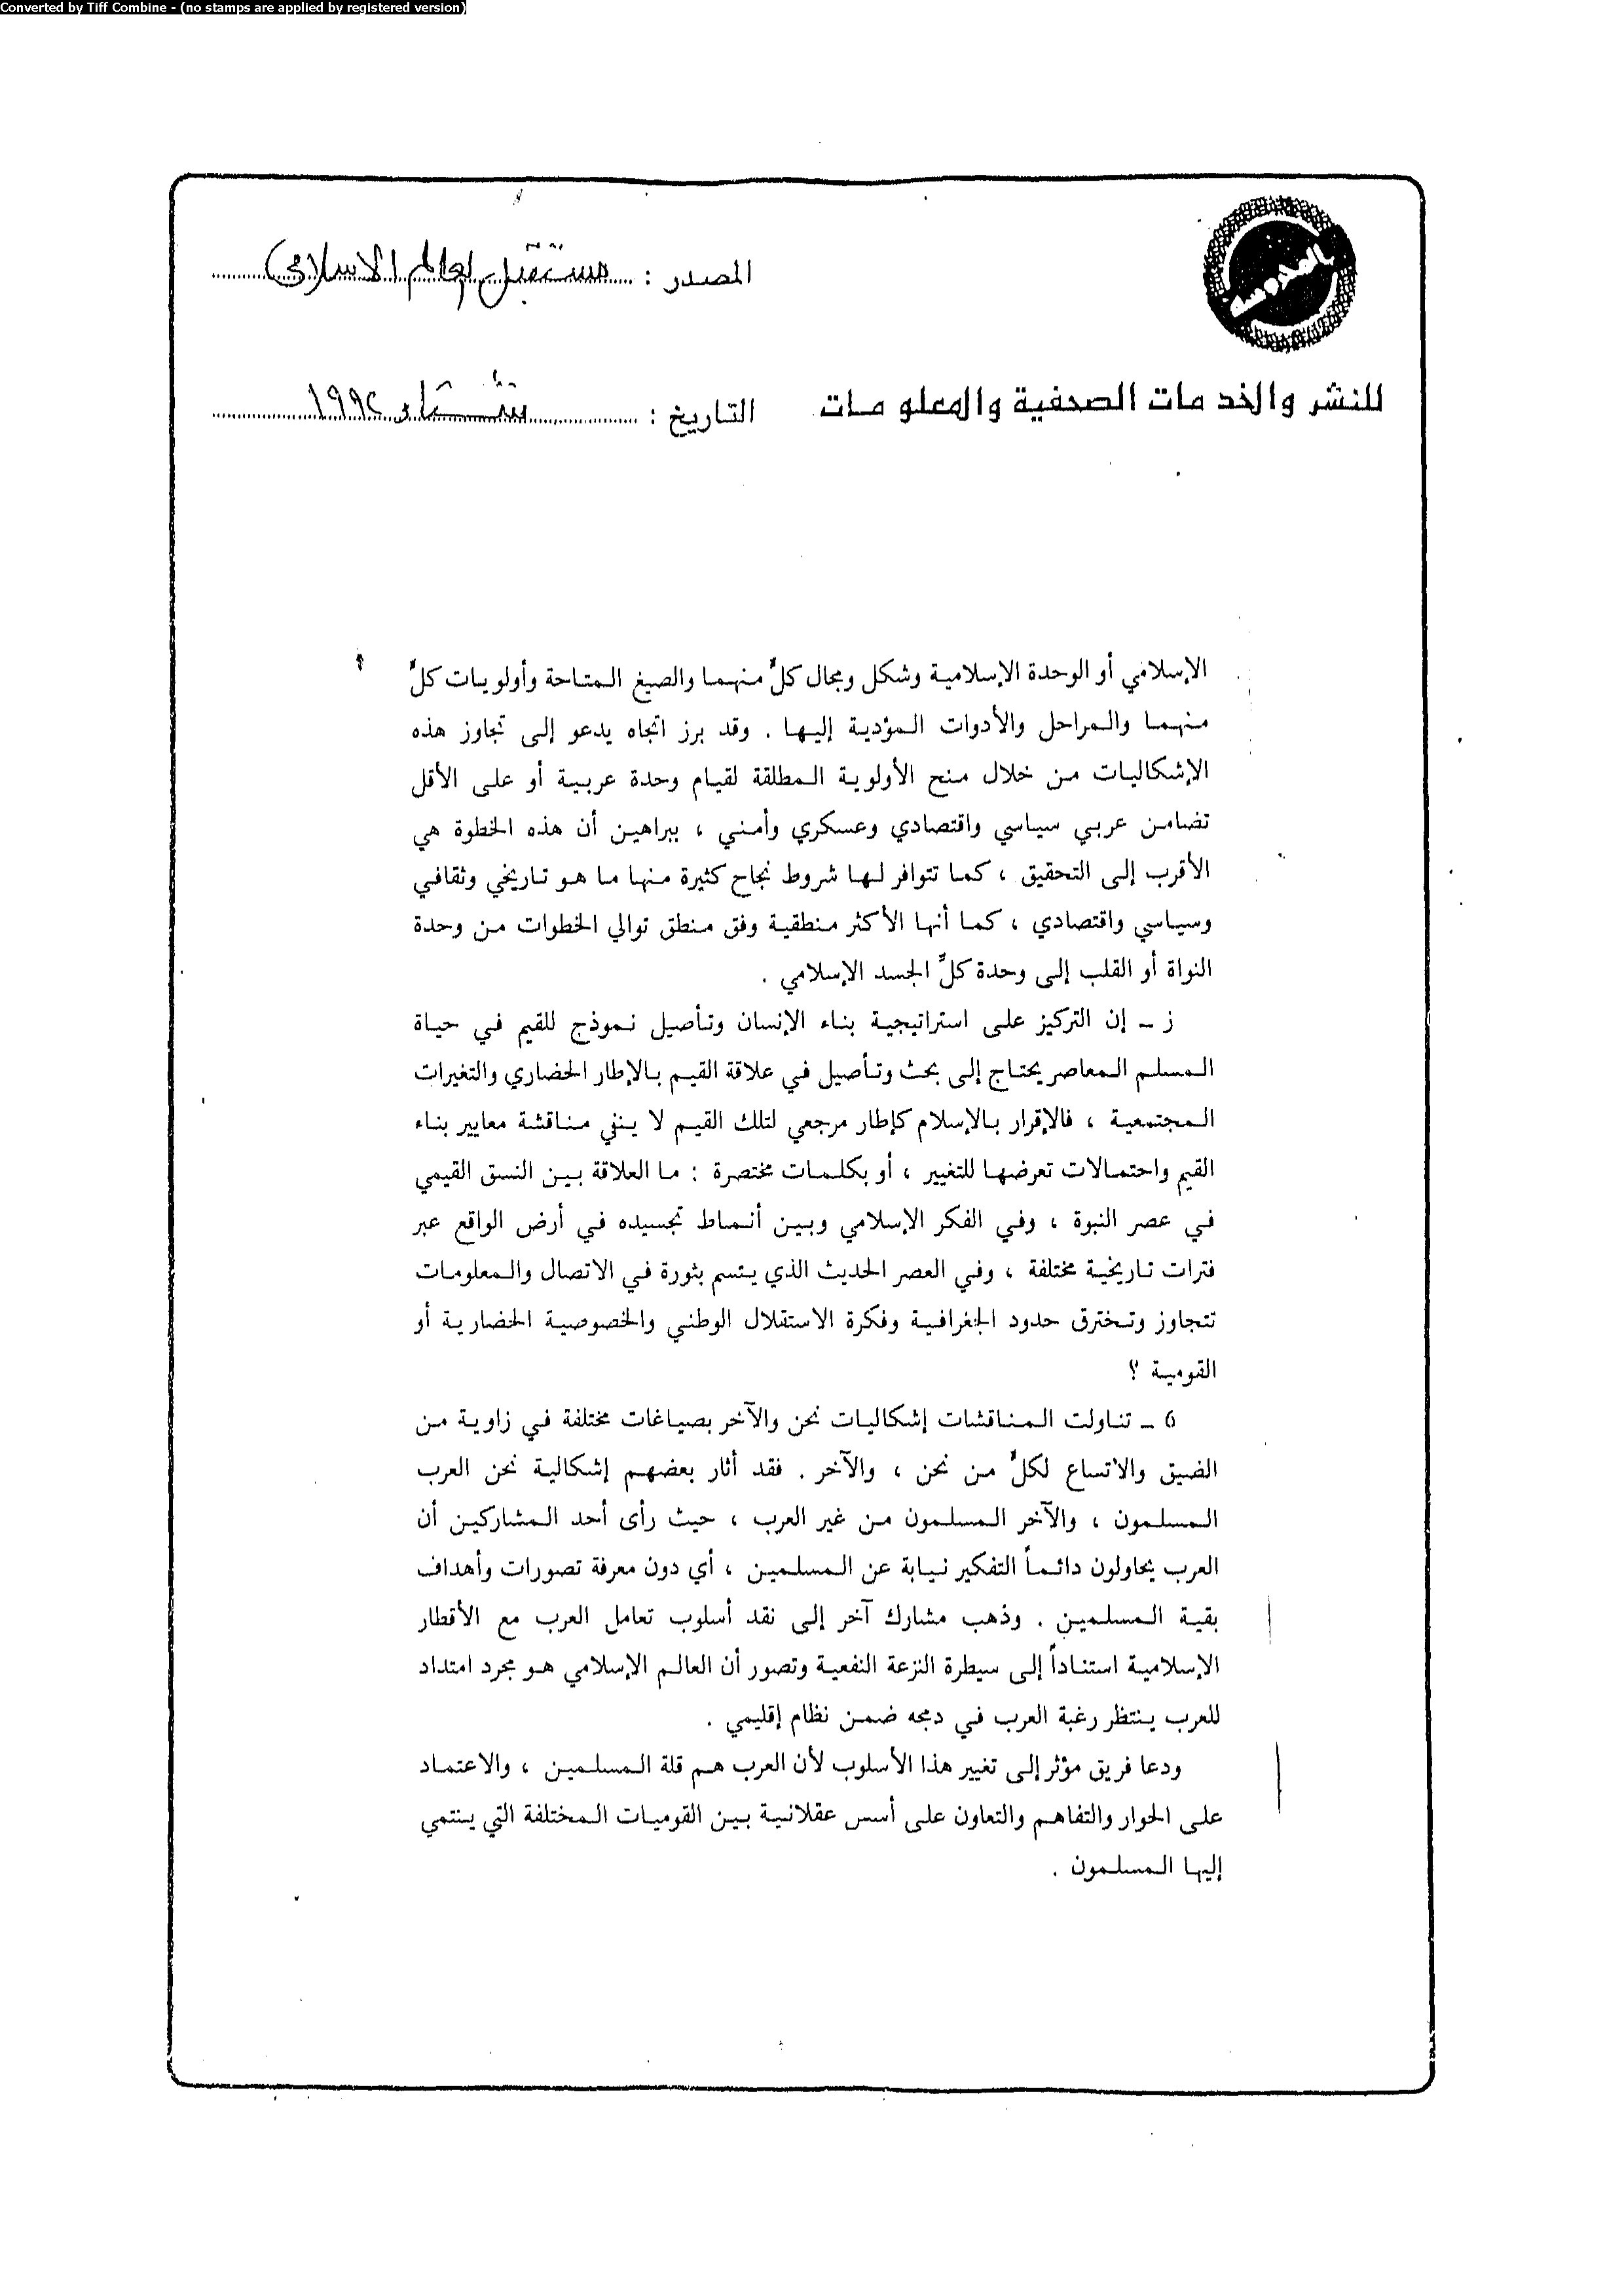 Converted by Tiff Combine - (no stamps are applied by registered version)
المصدر : مستقبل العالم الاسلامي
للنشر والخدمات الصحفية والمعلومات
التاريخ : شتاء ١٩٩٢
الإسلامي أو الوحدة الإسلامية وشكل ومجال كلٍّ منهما والصيغ المتاحة وأولويات كلٍّ
منهما والمراحل والأدوات المؤدية إليها . وقد برز اتجاه يدعو إلى تجاوز هذه
الإشكاليات من خلال منح الأولوية المطلقة لقيام وحدة عربية أو على الأقل
تضامن عربي سياسي واقتصادي وعسكري وأمني ، ببراهين أن هذه الخطوة هي
الأقرب إلى التحقيق ، كما تتوافر لها شروط نجاح كثيرة منها ما هو تاريخي وثقافي
وسياسي واقتصادي ، كما أنها الأكثر منطقية وفق منطق توالي الخطوات من وحدة
النواة أو القلب إلى وحدة كلِّ الجسد الإسلامي .
ز - إن التركيز على استراتيجية بناء الإنسان وتأصيل نموذج للقيم في حياة
المسلم المعاصر يحتاج إلى بحث وتأصيل في علاقة القيم بالإطار الحضاري والتغيرات
المجتمعية ، فالإقرار بالإسلام كإطار مرجعي لتلك القيم لا ينفي مناقشة معايير بناء
القيم واحتمالات تعرضها للتغيير ، أو بكلمات مختصرة : ما العلاقة بين النسق القيمي
في عصر النبوة ، وفي الفكر الإسلامي وبين أنماط تجسيده في أرض الواقع عبر
فترات تاريخية مختلفة ، وفي العصر الحديث الذي يتسم بثورة في الاتصال والمعلومات
تتجاوز وتخترق حدود الجغرافية وفكرة الاستقلال الوطني والخصوصية الحضارية أو
القومية ؟
6 - تناولت المناقشات إشكاليات نحن والآخر بصياغات مختلفة في زاوية من
الضيق والاتساع لكلٍّ من نحن ، والآخر . فقد أثار بعضهم إشكالية نحن العرب
المسلمون ، والآخر المسلمون من غير العرب ، حيث رأى أحد المشاركين أن
العرب يحاولون دائماً التفكير نيابة عن المسلمين ، أي دون معرفة تصورات وأهداف
بقية المسلمين . وذهب مشارك آخر إلى نقد أسلوب تعامل العرب مع الأقطار
الإسلامية استناداً إلى سيطرة النزعة النفعية وتصور أن العالم الإسلامي هو مجرد امتداد
للعرب ينتظر رغبة العرب في دمجه ضمن نظام إقليمي .
ودعا فريق مؤثر إلى تغيير هذا الأسلوب لأن العرب هم قلة المسلمين ، والاعتماد
على الحوار والتفاهم والتعاون على أسس عقلانية بين القوميات المختلفة التي ينتمي
إليها المسلمون .